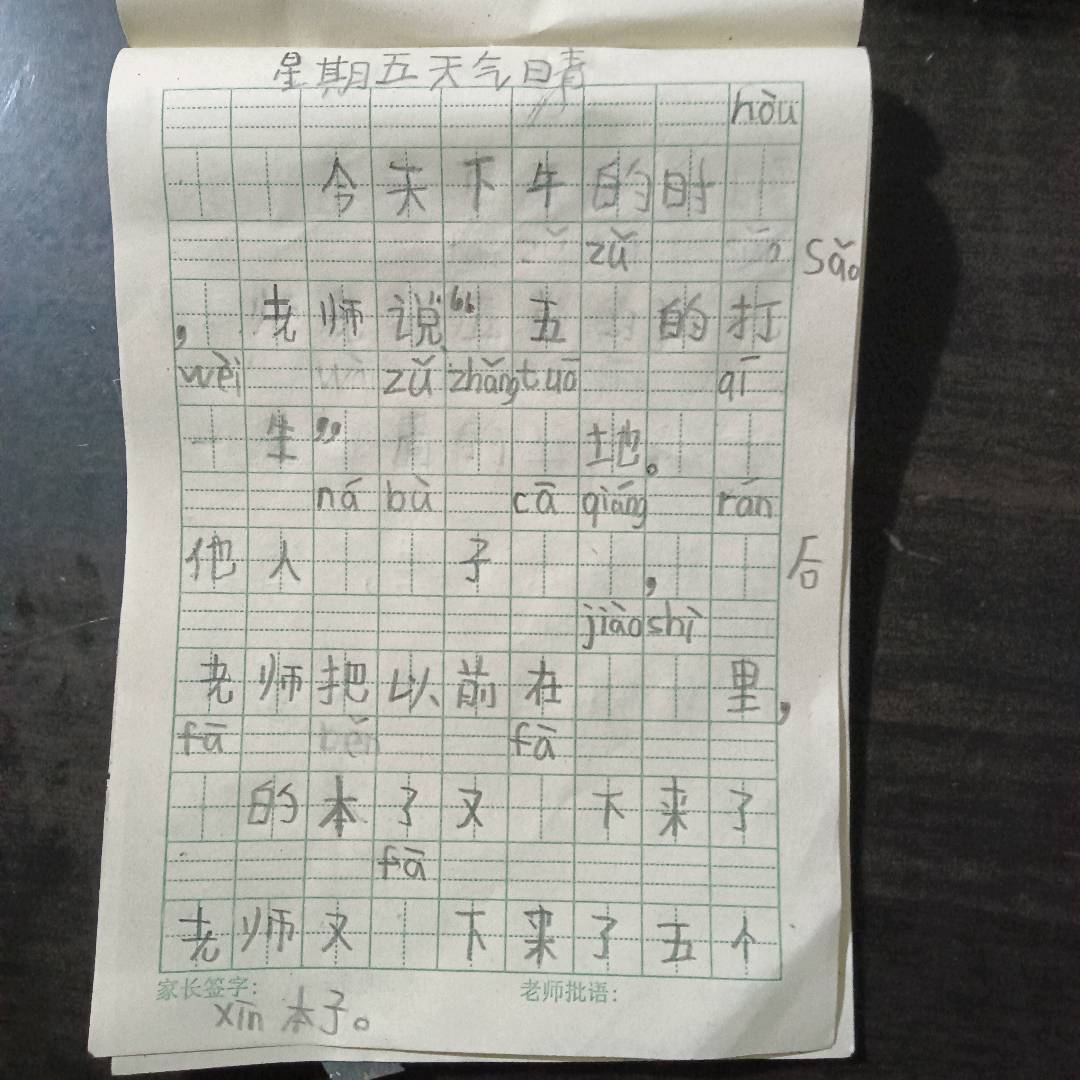 星期五天气日青
hòu
今天下牛的时
zǔ sǎo
，老师说“五 的打
wèi zǔ zhǎng tuō qī
生” 地。
ná bù cā qiáng rán
他人 子 ， 后
jiào shì
老师把以前在 里，
fā fā
的本了又 下来了
fā
老师又 下来了五个
家长签字： 老师批语：
xīn 本子。